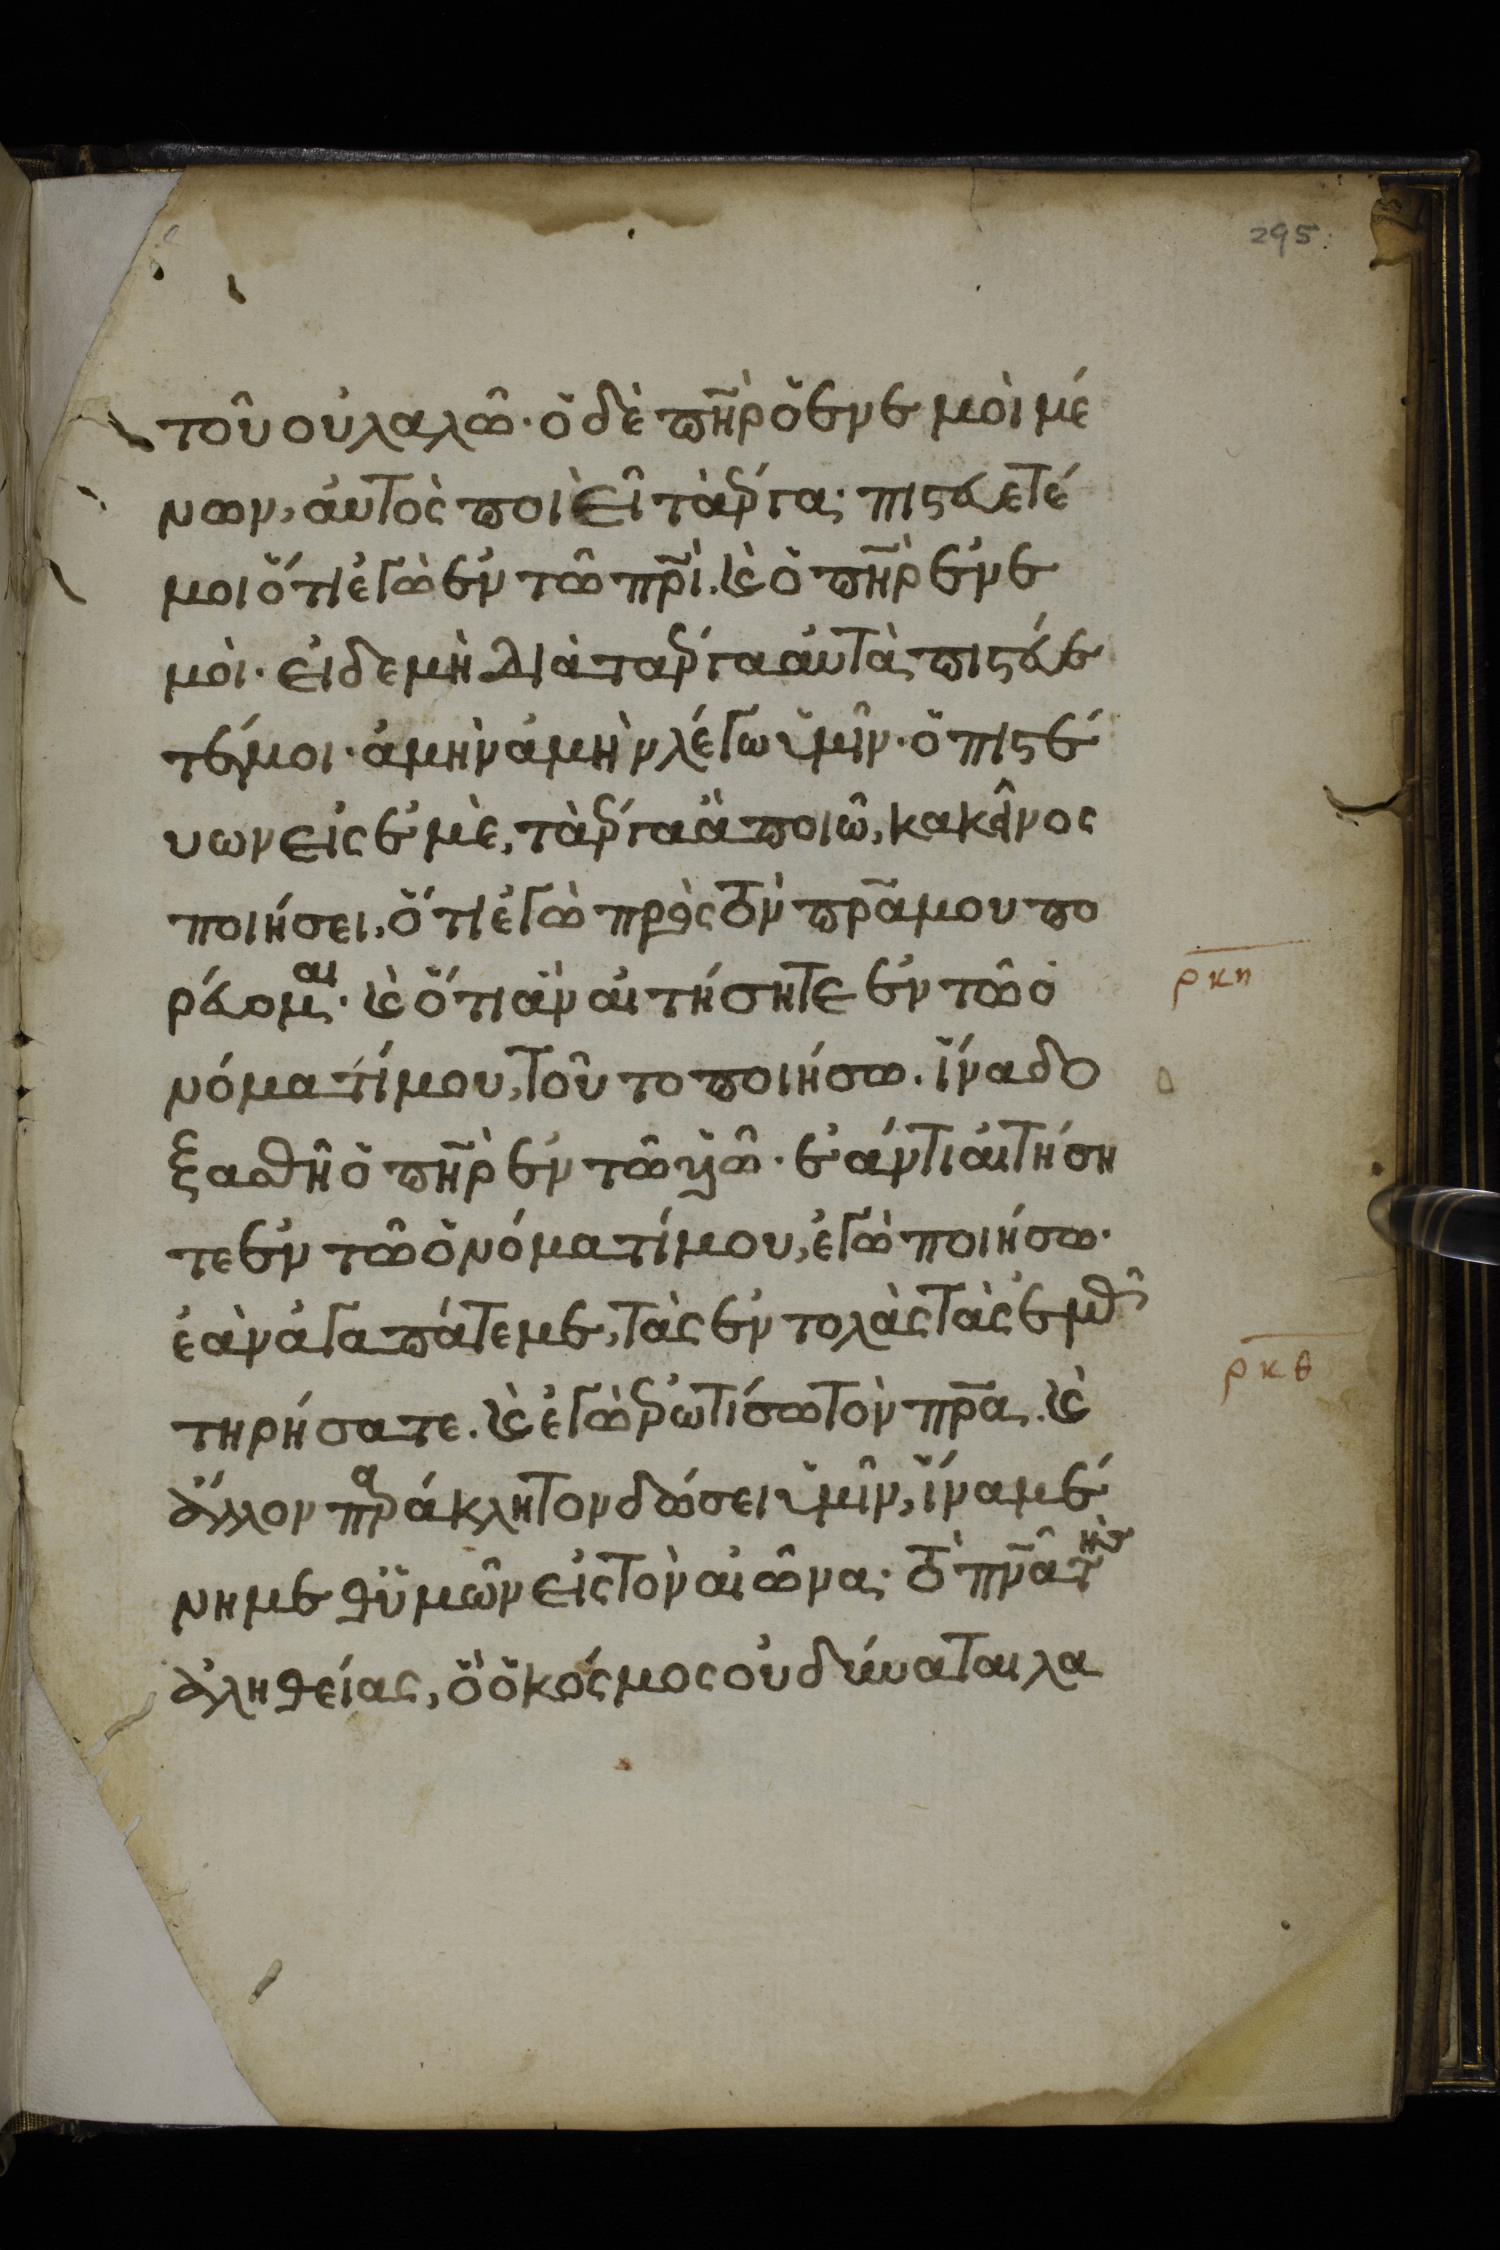 295
τοῦ οὐ λαλῶ· ὁ δὲ πη̅ρ ὁ ἐν ἐμοὶ μέ
νων, αὐτὸς ποιεῖ τὰ ἔργα· πιστεύετέ
μοι ὅτι ἐγὼ ἐν τῶ πρ̅ι. καὶ ὁ πη̅ρ ἐν ἐ
μοὶ· εἰ δε μὴ διὰ τα ἔργα αὐτὰ πιστεύε
τέ μοι· ἀμὴν ἀμὴν λέγω ὑμῖν· ὁ πιστέ
υων εἰς ἐμὲ, τὰ ἔργα ἃ ποιῶ, κακεῖνος
ποιήσει, ὅτι ἐγὼ πρὸς τὸν πρ̅α μου πο
ρεύομαι· καὶ ὅτι ἂν αἰτήσητε ἐν τῶ ὀ
ρκη
νόματί μου, τοῦτο ποιήσω. ἵνα δο
ξασθῆ ὁ πη̅ρ ἐν τῶ υἱῶ· ἐάν τι αἰτήση
τε ἐν τῶ ὀνόματί μου, ἐγὼ ποιήσω·
ἐὰν ἀγαπάτε με, τὰς ἐντολὰς τὰς ἐμὰς
ρκθ
τηρήσατε. καὶ ἐγὼ ἐρωτίσω τὸν πρ̅α. καὶ
ἄλλον παράκλητον δώσει ὑμῖν, ἵνα μέ
νη μεθ ὑμῶν εἰς τὸν αἰῶνα· τὸ πν̅α τῆς
ἀληθείας, ὃ ὁ κόσμος οὐ δύναται λα